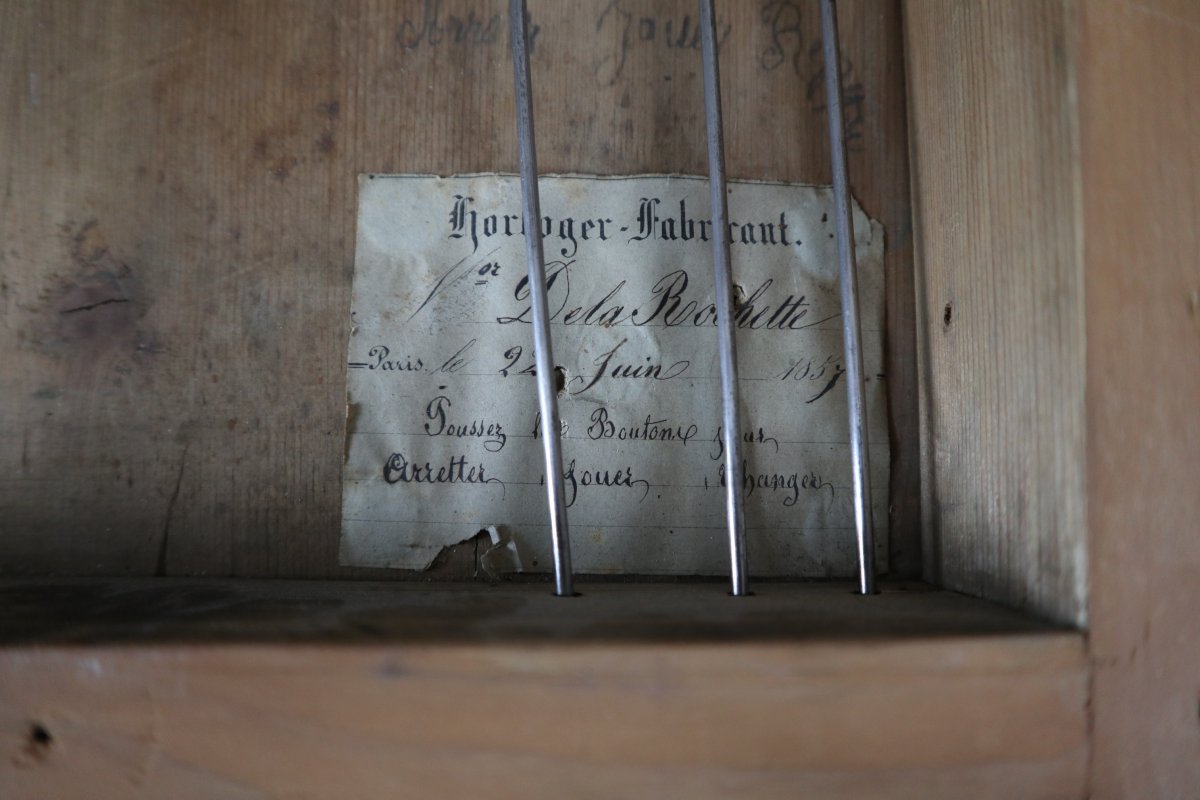 Arreter Jouer
Horloger-Fabricant.
Dela Rochette
Paris. le 22 Juin 1857
Poussez les Boutons pour
Arretter Jouer Changer